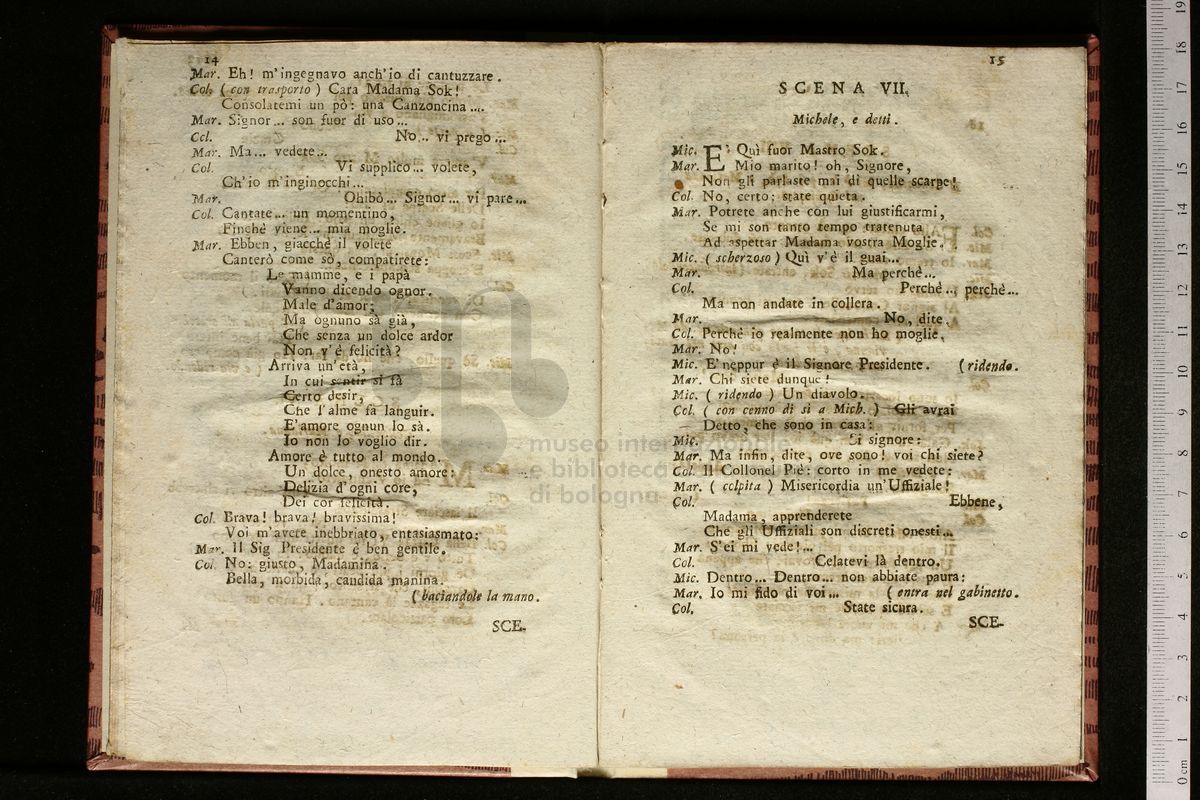 14
Mar. Eh! m'ingegnavo anch'io di cantuzzare.
Col. ( con trasporto ) Cara Madama Sok!
Consolatemi un pò: una Canzoncina ....
Mar. Signor... son fuor di uso...
Col. No... vi prego...
Mar. Ma... vedete...
Col. Vi supplico... volete,
Ch'io m'inginocchi...
Mar. Ohibò... Signor... vi pare...
Col. Cantate... un momentino,
Finchè viene... mia moglie.
Mar. Ebben, giacchè il volete
Canterò come sò, compatirete:
Le mamme, e i papà
Vanno dicendo ognor.
Male d'amor;
Ma ognuno sà già,
Che senza un dolce ardor
Non v'è felicità?
Arriva un'età,
In cui sentir si fà
Certo desir,
Che l'alme fà languir.
E'amore ognun lo sà.
Io non lo voglio dir.
Amore è tutto al mondo.
Un dolce, onesto amore:
Delizia d'ogni core,
Dei cor felicità.
Col. Brava! brava! bravissima!
Voi m'avete inebbriato, entasiasmato:
Mar. Il Sig Presidente è ben gentile.
Col. No: giusto, Madamina.
Bella, morbida, candida manina.
(baciandole la mano.
SCE-
15
SCENA VII.
Michele, e detti.
Mic. E' Quì fuor Mastro Sok.
Mar. Mio marito! oh, Signore,
Non gli parlaste mai di quelle scarpe!
Col. No, certo: state quieta.
Mar. Potrete anche con lui giustificarmi,
Se mi son tanto tempo tratenuta
Ad aspettar Madama vostra Moglie.
Mic. ( scherzoso ) Quì v'è il guai...
Mar. Ma perchè...
Col. Perchè... perchè...
Ma non andate in collera.
Mar. No, dite.
Col. Perchè io realmente non ho moglie.
Mar. No!
Mic. E'neppur è il Signore Presidente. (ridendo.
Mar. Chi siete dunque!
Mic. ( ridendo ) Un diavolo.
Col. ( con cenno di sì a Mich. ) Gli avrai
Detto, che sono in casa:
Mic. Si signore:
Mar. Ma infin, dite, ove sono! voi chi siete?
Col. Il Collonel Piè: corto in me vedete:
Mar. ( colpita ) Misericordia un'Uffiziale!
Col. Ebbene,
Madama, apprenderete
Che gli Uffiziali son discreti onesti...
Mar. S'ei mi vede!...
Col. Celatevi là dentro.
Mic. Dentro... Dentro... non abbiate paura:
Mar. Io mi fido di voi... (entra nel gabinetto.
Col. State sicura.
SCE-
museo internazionale
e biblioteca
di bologna